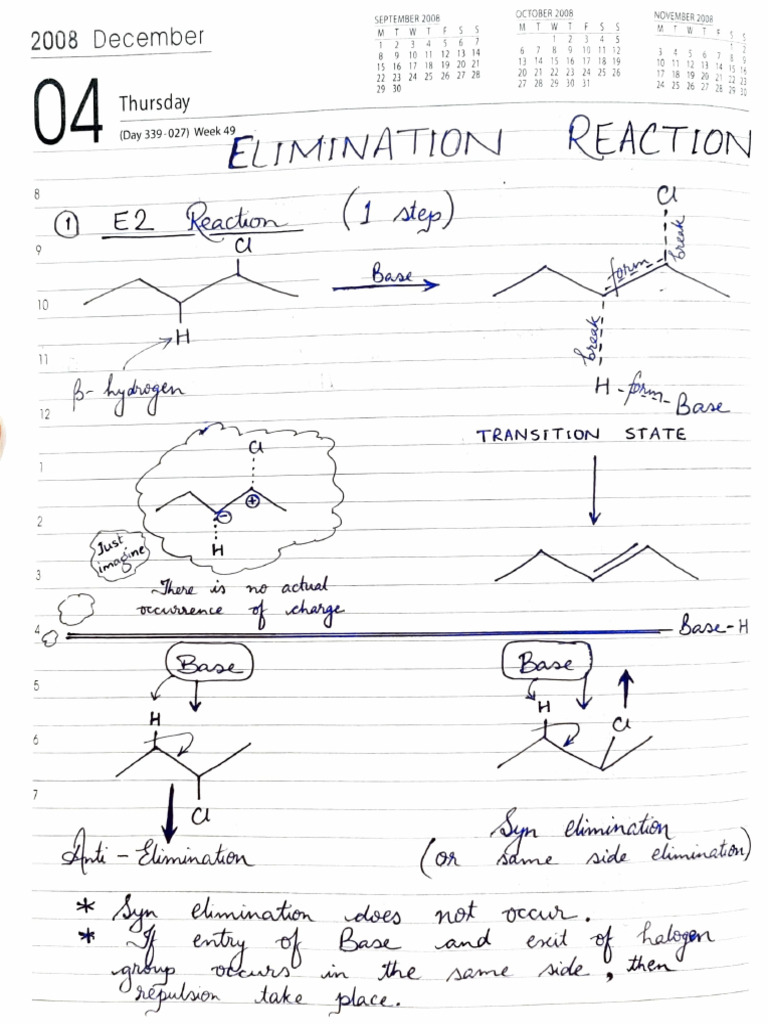 2008 December
SEPTEMBER 2008
M T W T F S S
1 2 3 4 5 6 7
8 9 10 11 12 13 14
15 16 17 18 19 20 21
22 23 24 25 26 27 28
29 30
OCTOBER 2008
M T W T F S S
1 2 3 4 5
6 7 8 9 10 11 12
13 14 15 16 17 18 19
20 21 22 23 24 25 26
27 28 29 30 31
NOVEMBER 2008
M T W T F S S
1 2
3 4 5 6 7 8 9
10 11 12 13 14 15 16
17 18 19 20 21 22 23
24 25 26 27 28 29 30
04 Thursday
(Day 339-027) Week 49
ELIMINATION REACTION
8
① E2 Reaction (1 step)
Cl
Cl
break
9
Base
form
10
H
break
11
β-hydrogen
H - form - Base
12
TRANSITION STATE
1
Cl
⊕
2
⊖
H
Just
imagine
3
There is no actual
occurrence of charge
4
Base-H
Base
Base
5
H
H
Cl
6
7
Cl
Anti - Elimination
Syn elimination
(or same side elimination)
* Syn elimination does not occur.
* If entry of Base and exit of halogen
group occurs in the same side, then
repulsion take place.